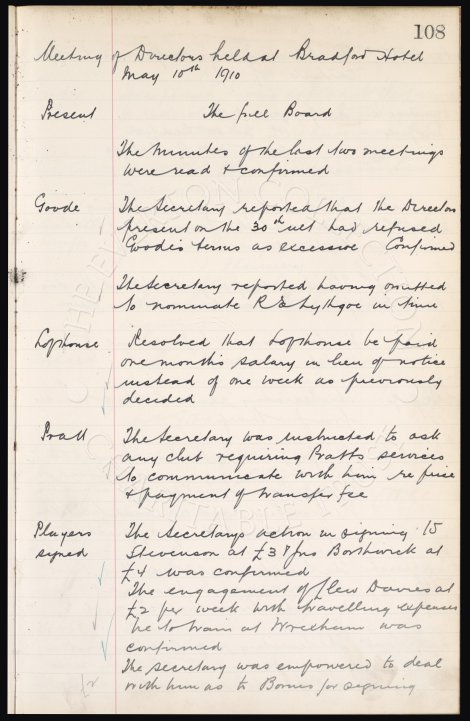 108
Meeting of Directors held at Bradford Hotel
May 10th 1910
Present The full Board
The Minutes of the last two meetings
were read + confirmed
Goode The Secretary reported that the Directors
present on the 30th ult had refused
Goode's terms as excessive Confirmed
The Secretary reported having omitted
to nominate R E Lythgoe in time
Lofthouse Resolved that Lofthouse be paid
one month's salary in lieu of notice
instead of one week as previously
decided
Pratt The Secretary was instructed to ask
any club requiring Pratt's services
to communicate with him re price
+ payment of transfer fee
Players The Secretary's action in signing
signed Stevenson at £3 Jns Borthwick at
£4 was confirmed
The engagement of Llew Davies at
£2 per week with travelling expenses
he to train at Wrexham was
confirmed
The Secretary was empowered to deal
with him as to Bonus for signing